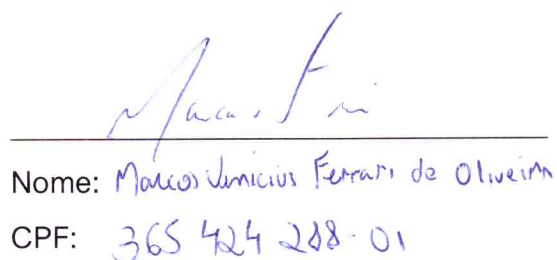 Nome: Marcos Vinicius Ferrari de Oliveira
CPF: 365 424 288-01